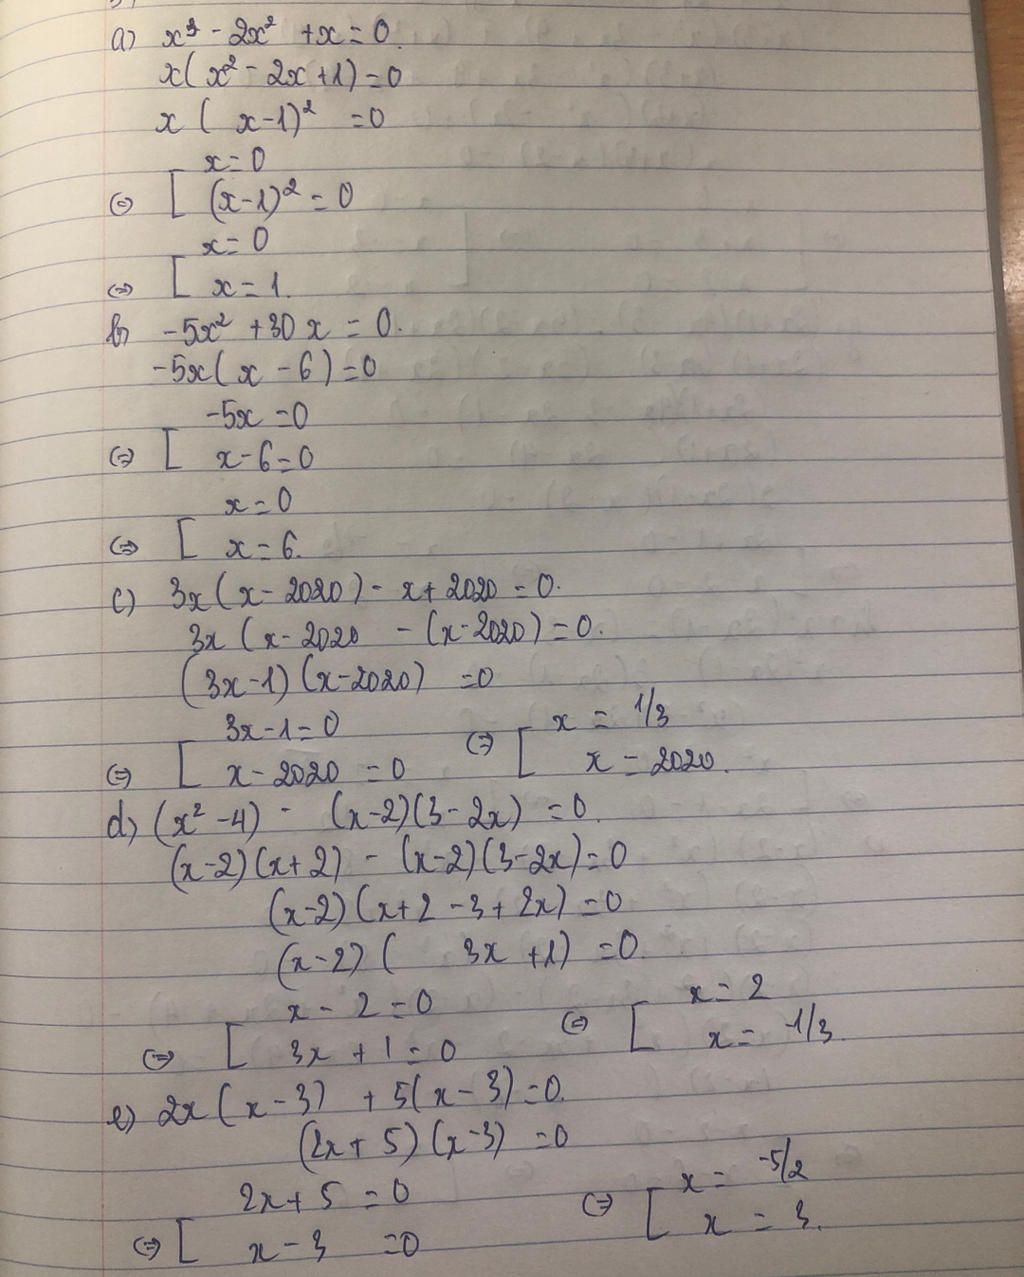 a) x³ - 2x² + x = 0.
x(x² - 2x + 1) = 0
x ( x-1)² = 0
x = 0
⇔ [ (x-1)² = 0
x = 0
⇔ [ x = 1.
b) -5x² + 30x = 0.
-5x( x - 6) = 0
-5x = 0
⇔ [ x - 6 = 0
x = 0
⇔ [ x = 6.
c) 3x( x - 2020) - x + 2020 = 0.
3x ( x - 2020 - (x - 2020) = 0.
(3x-1) (x-2020) = 0
3x - 1 = 0 ⇔ [ x = 1/3
⇔ [ x - 2020 = 0 x = 2020.
d) (x² - 4) - (x-2)(3-2x) = 0.
(x-2)(x+2) - (x-2)(3-2x) = 0
(x-2)(x+2-3+2x) = 0
(x-2)( 3x + 1) = 0.
x - 2 = 0 ⇔ [ x = 2
⇔ [ 3x + 1 = 0 x = -1/3.
e) 2x(x-3) + 5(x-3) = 0.
(2x+5)(x-3) = 0
2x + 5 = 0 ⇔ [ x = -5/2
⇔ [ x - 3 = 0 x = 3.